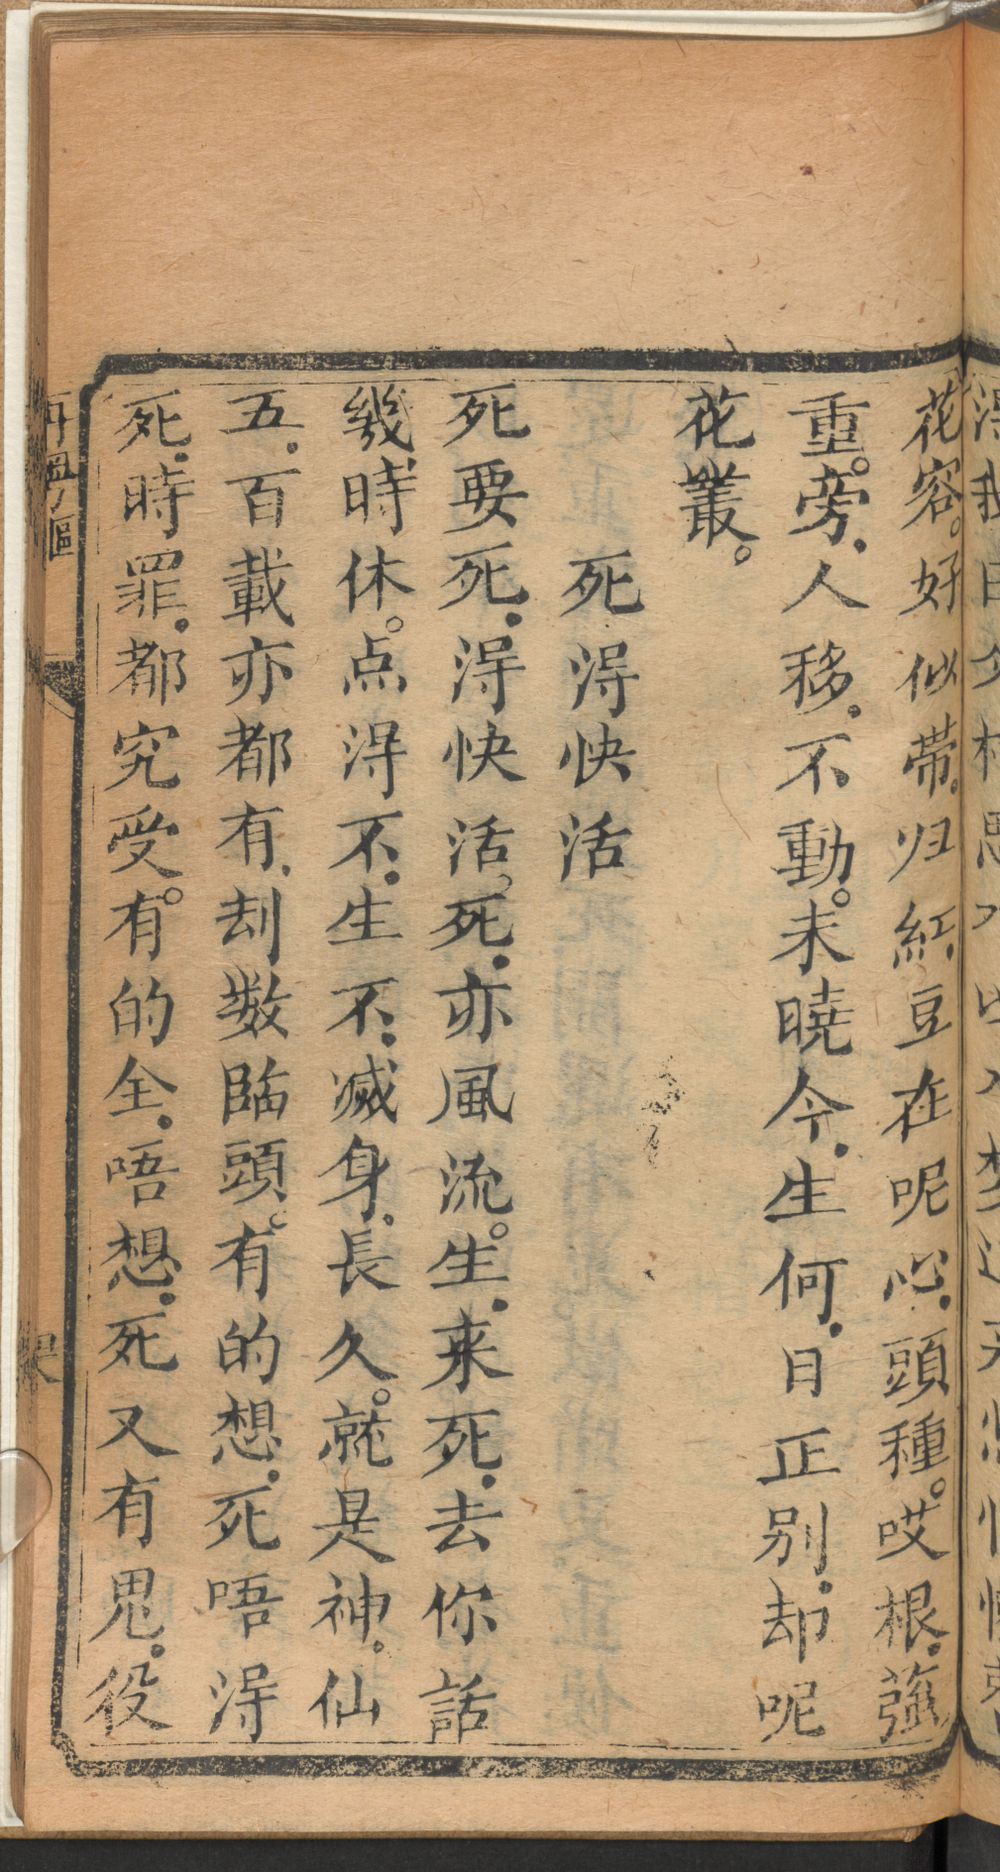 花容。好似带归紅豆在呢心頭種。哎根強
重。旁人移不動。未曉今生何日正別却呢
花叢。
死得快活
死要死得快活死亦風流。生来死去你話
幾時休。点得不生不滅身長久。就是神仙
五百載亦都有刦數臨頭。有的想死唔得
死時罪都究受。有的全唔想死又有鬼。役